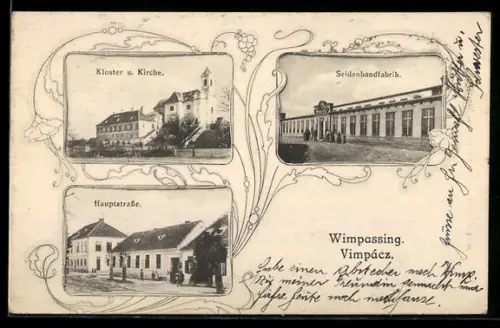 Kloster u. Kirche.
Seidenbandfabrik.
Hauptstraße.
Wimpassing.
Vimpácz.
Habe einen Abstecher nach Wimp.
zu meiner Freundin gemacht und
fahre heute noch nachhause.
Grüße an